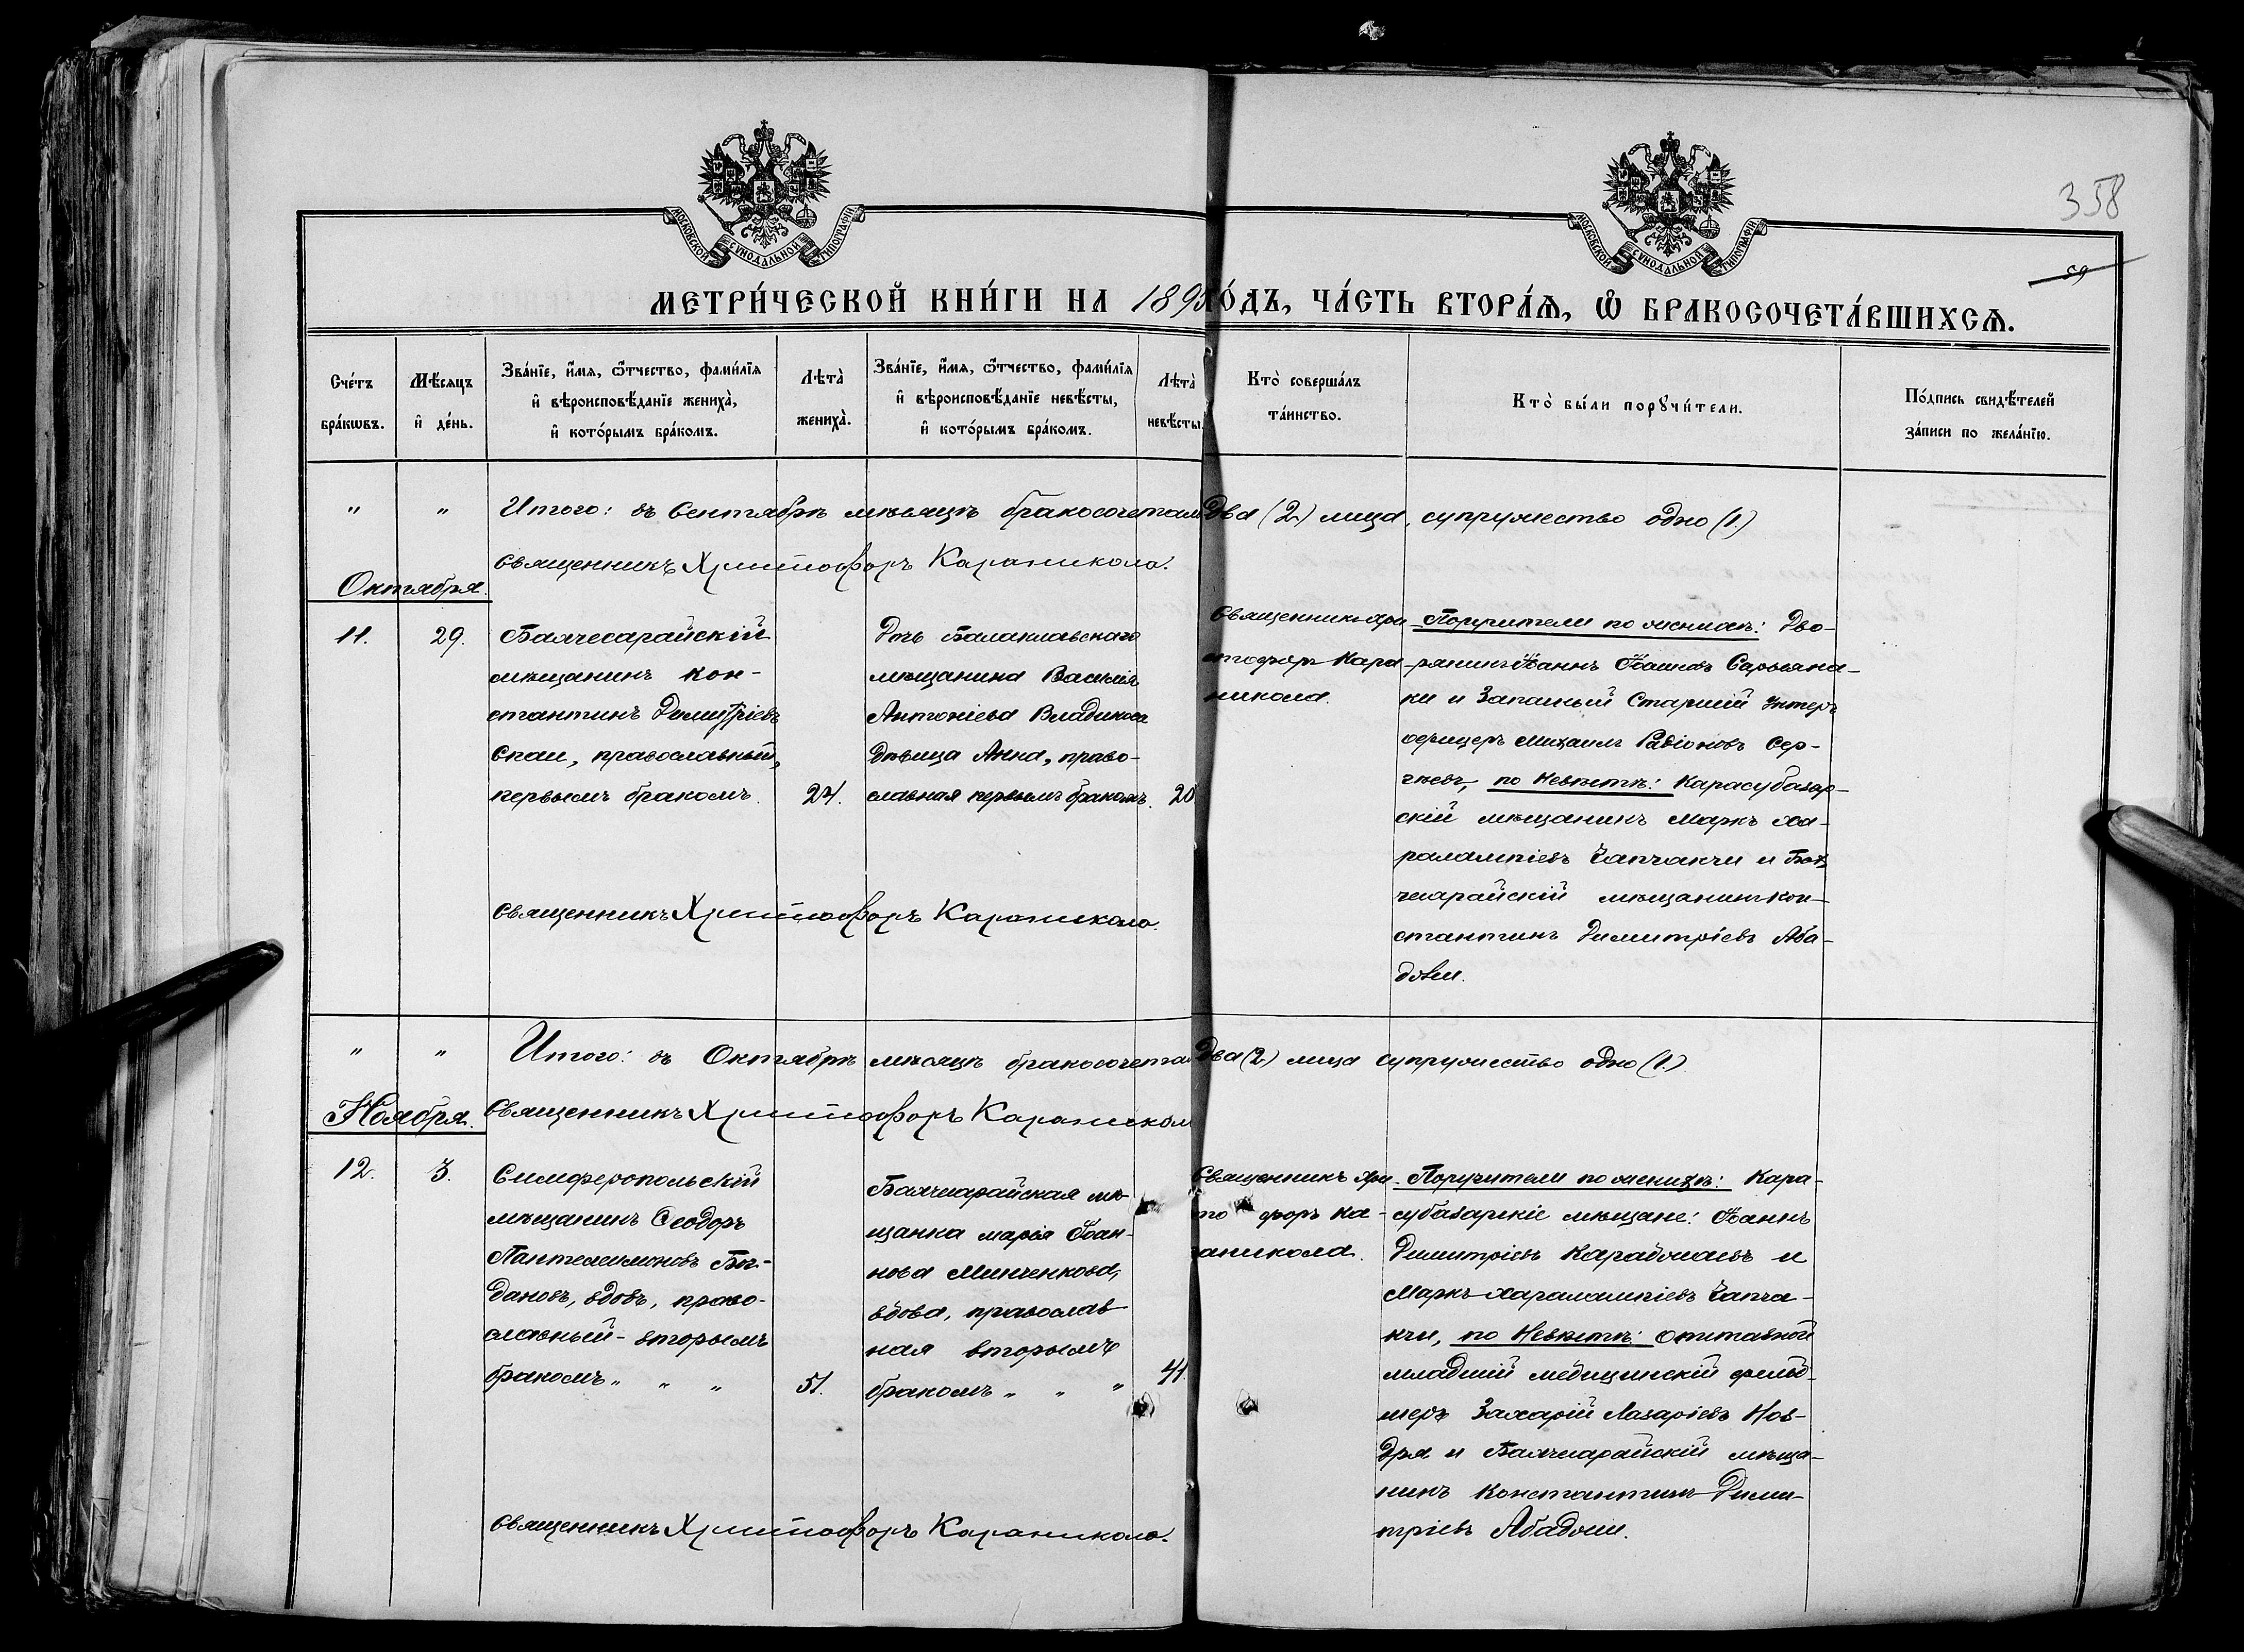 358
59
МОСКОВСКОЙ СѴНОДАЛЬНОЙ ТИПОГРАФІИ
МОСКОВСКОЙ СѴНОДАЛЬНОЙ ТИПОГРАФІИ
МЕТРИ́ЧЕСКОЙ КНИ́ГИ НА 1895 ГО́ДЪ, ЧА́СТЬ ВТОРА́Ѧ, Ѡ҆ БРАКОСОЧЕТА́ВШИХСѦ.
Сче́тъ
бра́кѡвъ.
Мѣ́сяцъ
и҆ де́нь.
Зва́нїе, и҆́мѧ, ѻ҆́тчество, фами́лїѧ
и҆ вѣроисповѣ́данїе жениха̀,
и҆ кото́рымъ бра́комъ.
Лѣта̀
жениха̀.
Зва́нїе, и҆́мѧ, ѻ҆́тчество, фами́лїѧ
и҆ вѣроисповѣ́данїе невѣ́сты,
и҆ кото́рымъ бра́комъ.
Лѣта̀
невѣ́сты.
Кто̀ соверша́лъ
та́инство.
Кто̀ бы́ли порꙋчи́тели.
По́дпись свидѣ́телей
за́писи по жела́нїю.
" " Итого: въ Сентябрѣ мѣсяцѣ бракосочетал Два (2) лица, супружество одно (1.)
Священникъ Христофоръ Караникола.
Октября.
11. 29.
Бахчесарайскій
мѣщанинъ Кон-
стантинъ Димитріевъ
Спаи, православный,
первымъ бракомъ. 24.
Дочь Балаклавскаго
мѣщанина Василія
Антоніева Владикова
Дѣвица Анна, право-
славная первымъ бракомъ. 20
Священникъ Хри
стофоръ Кара
никола.
Поручители по женихѣ: Дво-
рянинъ Іоаннъ Іоанновъ Сарьяна-
ки и Запасный Старшій Унтеръ
офицеръ Михаилъ Радіоновъ Сер-
гѣевъ, по Невѣстѣ: Карасубазар-
скій мѣщанинъ Маркъ Ха-
рлампіевъ Чапчакчи и Бах
чисарайскій мѣщанинъ Кон-
стантинъ Димитріевъ Аба-
Священникъ Христофоръ Караникола.
" " Итого: въ Октябрѣ мѣсяцѣ бракосочетал Два (2) лица супружество одно (1.)
Ноября.
Священникъ Христофоръ Караникол
12. 3.
Симферопольскій
мѣщанинъ Ѳеодоръ
Пантелеимоновъ Бог-
дановъ, вдовъ, право-
славный - вторымъ
бракомъ " " " 51.
Бахчисарайская мѣ-
щанка Марія Іоан-
нова Минченкова,
вдова, православ
ная вторымъ
бракомъ " " " 41.
Священникъ Хри
сто форъ Ка-
раникола.
Поручители по женихѣ: Кара-
субазарскіе мѣщане: Іоаннъ
Димитріевъ и
Маркъ Харалампіевъ Чапча-
кчи, по Невѣстѣ: Отставной
младшій медицинскій фельд-
шеръ Захарій Лазаріевъ Нов-
дря и Бахчисарайскій мѣща-
нинъ Константинъ Дими-
тріевъ
Священникъ Христофоръ Караникола.